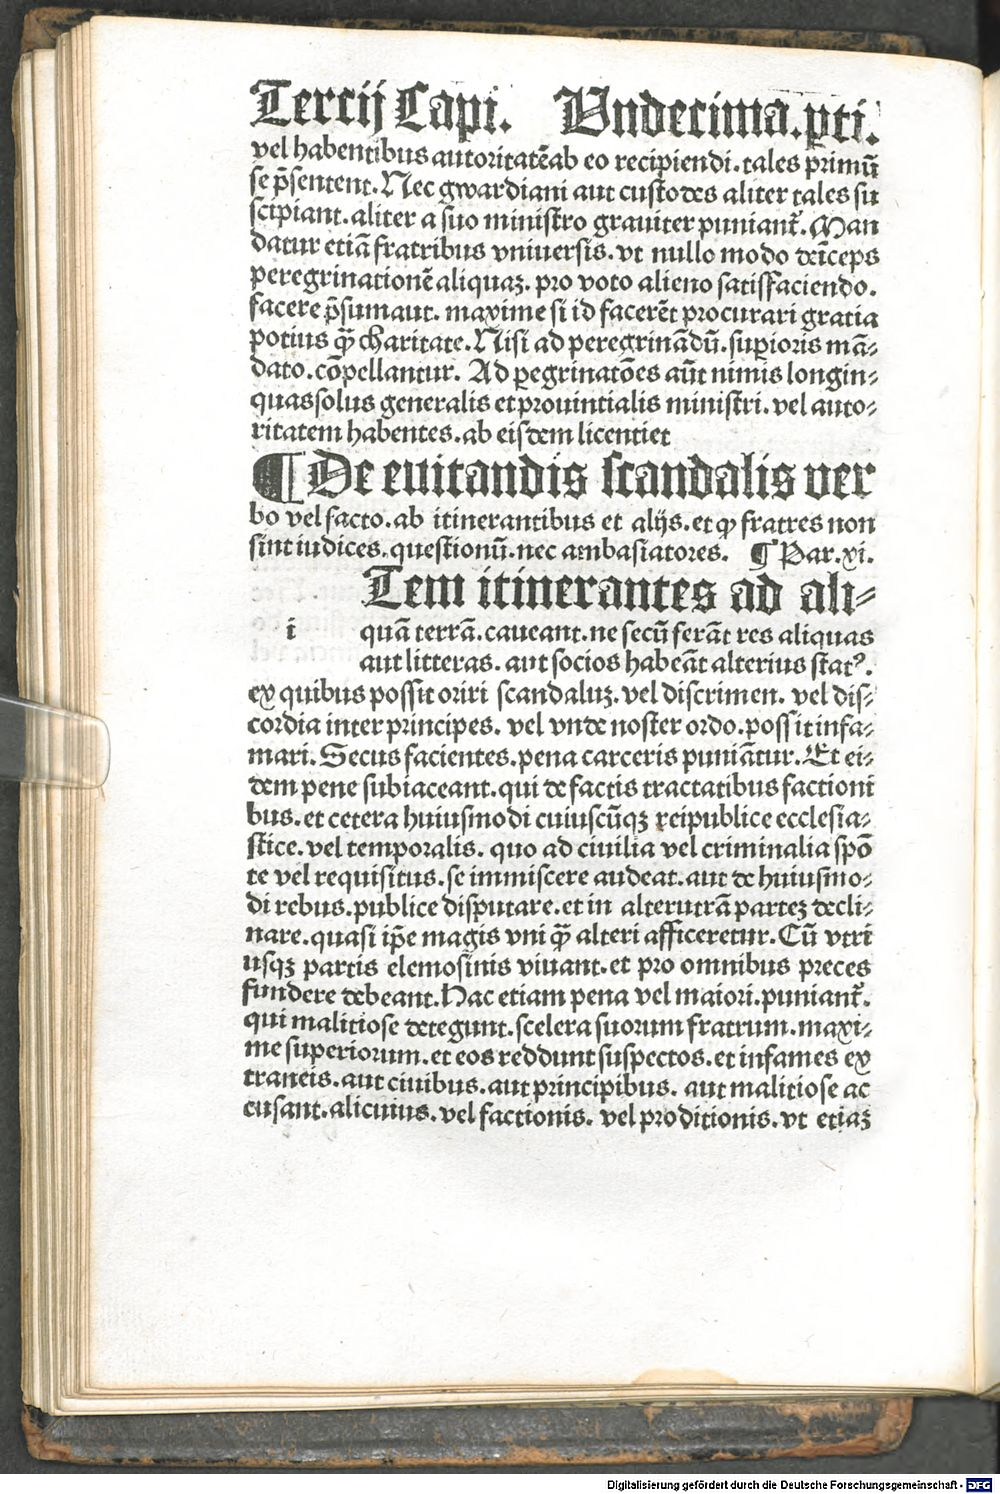 Tercij Capi. Undecima.pti.
vel habentibus autoritatēab eo recipiendi.tales primū
se p̄sentent.Nec gwardiani aut custodes aliter tales su
scipiant.aliter a suo ministro grauiter puniant᷑.Man
datur etiā fratribus vniuersis.vt nullo modo deīceps
peregrinationē aliquaꝫ.pro voto alieno satisfaciendo.
facere p̄sumaut.maxime si id facerēt procurari gratia
potius q̄ꝫ charitate.Nisi ad peregrinādū.suꝑioris mā⸗
dato.cōpellantur. Ad ꝑegrinatōes aūt nimis longin⸗
quas solus generalis et prouintialis ministri.vel auto⸗
ritatem habentes.ab eisdem licentiet
¶ De euitandis scandalis ver
bo vel facto.ab itinerantibus et alijs.et ꝙ fratres non
sint iudices.questionū.nec ambasiatores. ¶ Par.xi.
Tem itinerantes ad ali⸗
i quā terrā.caueant.ne secū ferāt res aliquas
aut litteras.aut socios habeāt alterius statꝰ.
ex quibus possit oriri scandaluꝫ.vel discrimen.vel dis⸗
cordia inter principes.vel vnde noster ordo.possit infa⸗
mari.Secus facientes.pena carceris puniātur.Et ei⸗
dem pene subiaceant.qui de factis tractatibus factioni
bus.et cetera huiusmodi cuiuscūqꝫ reipublice ecclesia⸗
stice.vel temporalis.quo ad ciuilia vel criminalia spō
te vel requisitus.se immiscere audeat.aut de huiusmo⸗
di rebus.publice disputare.et in alterutrā parteꝫ decli⸗
nare.quasi ip̄e magis vni q̄ꝫ alteri afficeretur.Cū vtri
usqꝫ partis elemosinis viuant.et pro omnibus preces
fundere debeant.Hac etiam pena vel maiori.puniant᷑.
qui malitiose detegunt.scelera suorum fratrum.maxi⸗
me superiorum.et eos reddunt suspectos.et infames ex
traneis.aut ciuibus.aut principibus.aut malitiose ac
cusant.alicuius.vel factionis.vel proditionis.vt etiaꝫ
Digitalisierung gefördert durch die Deutsche Forschungsgemeinschaft - DFG